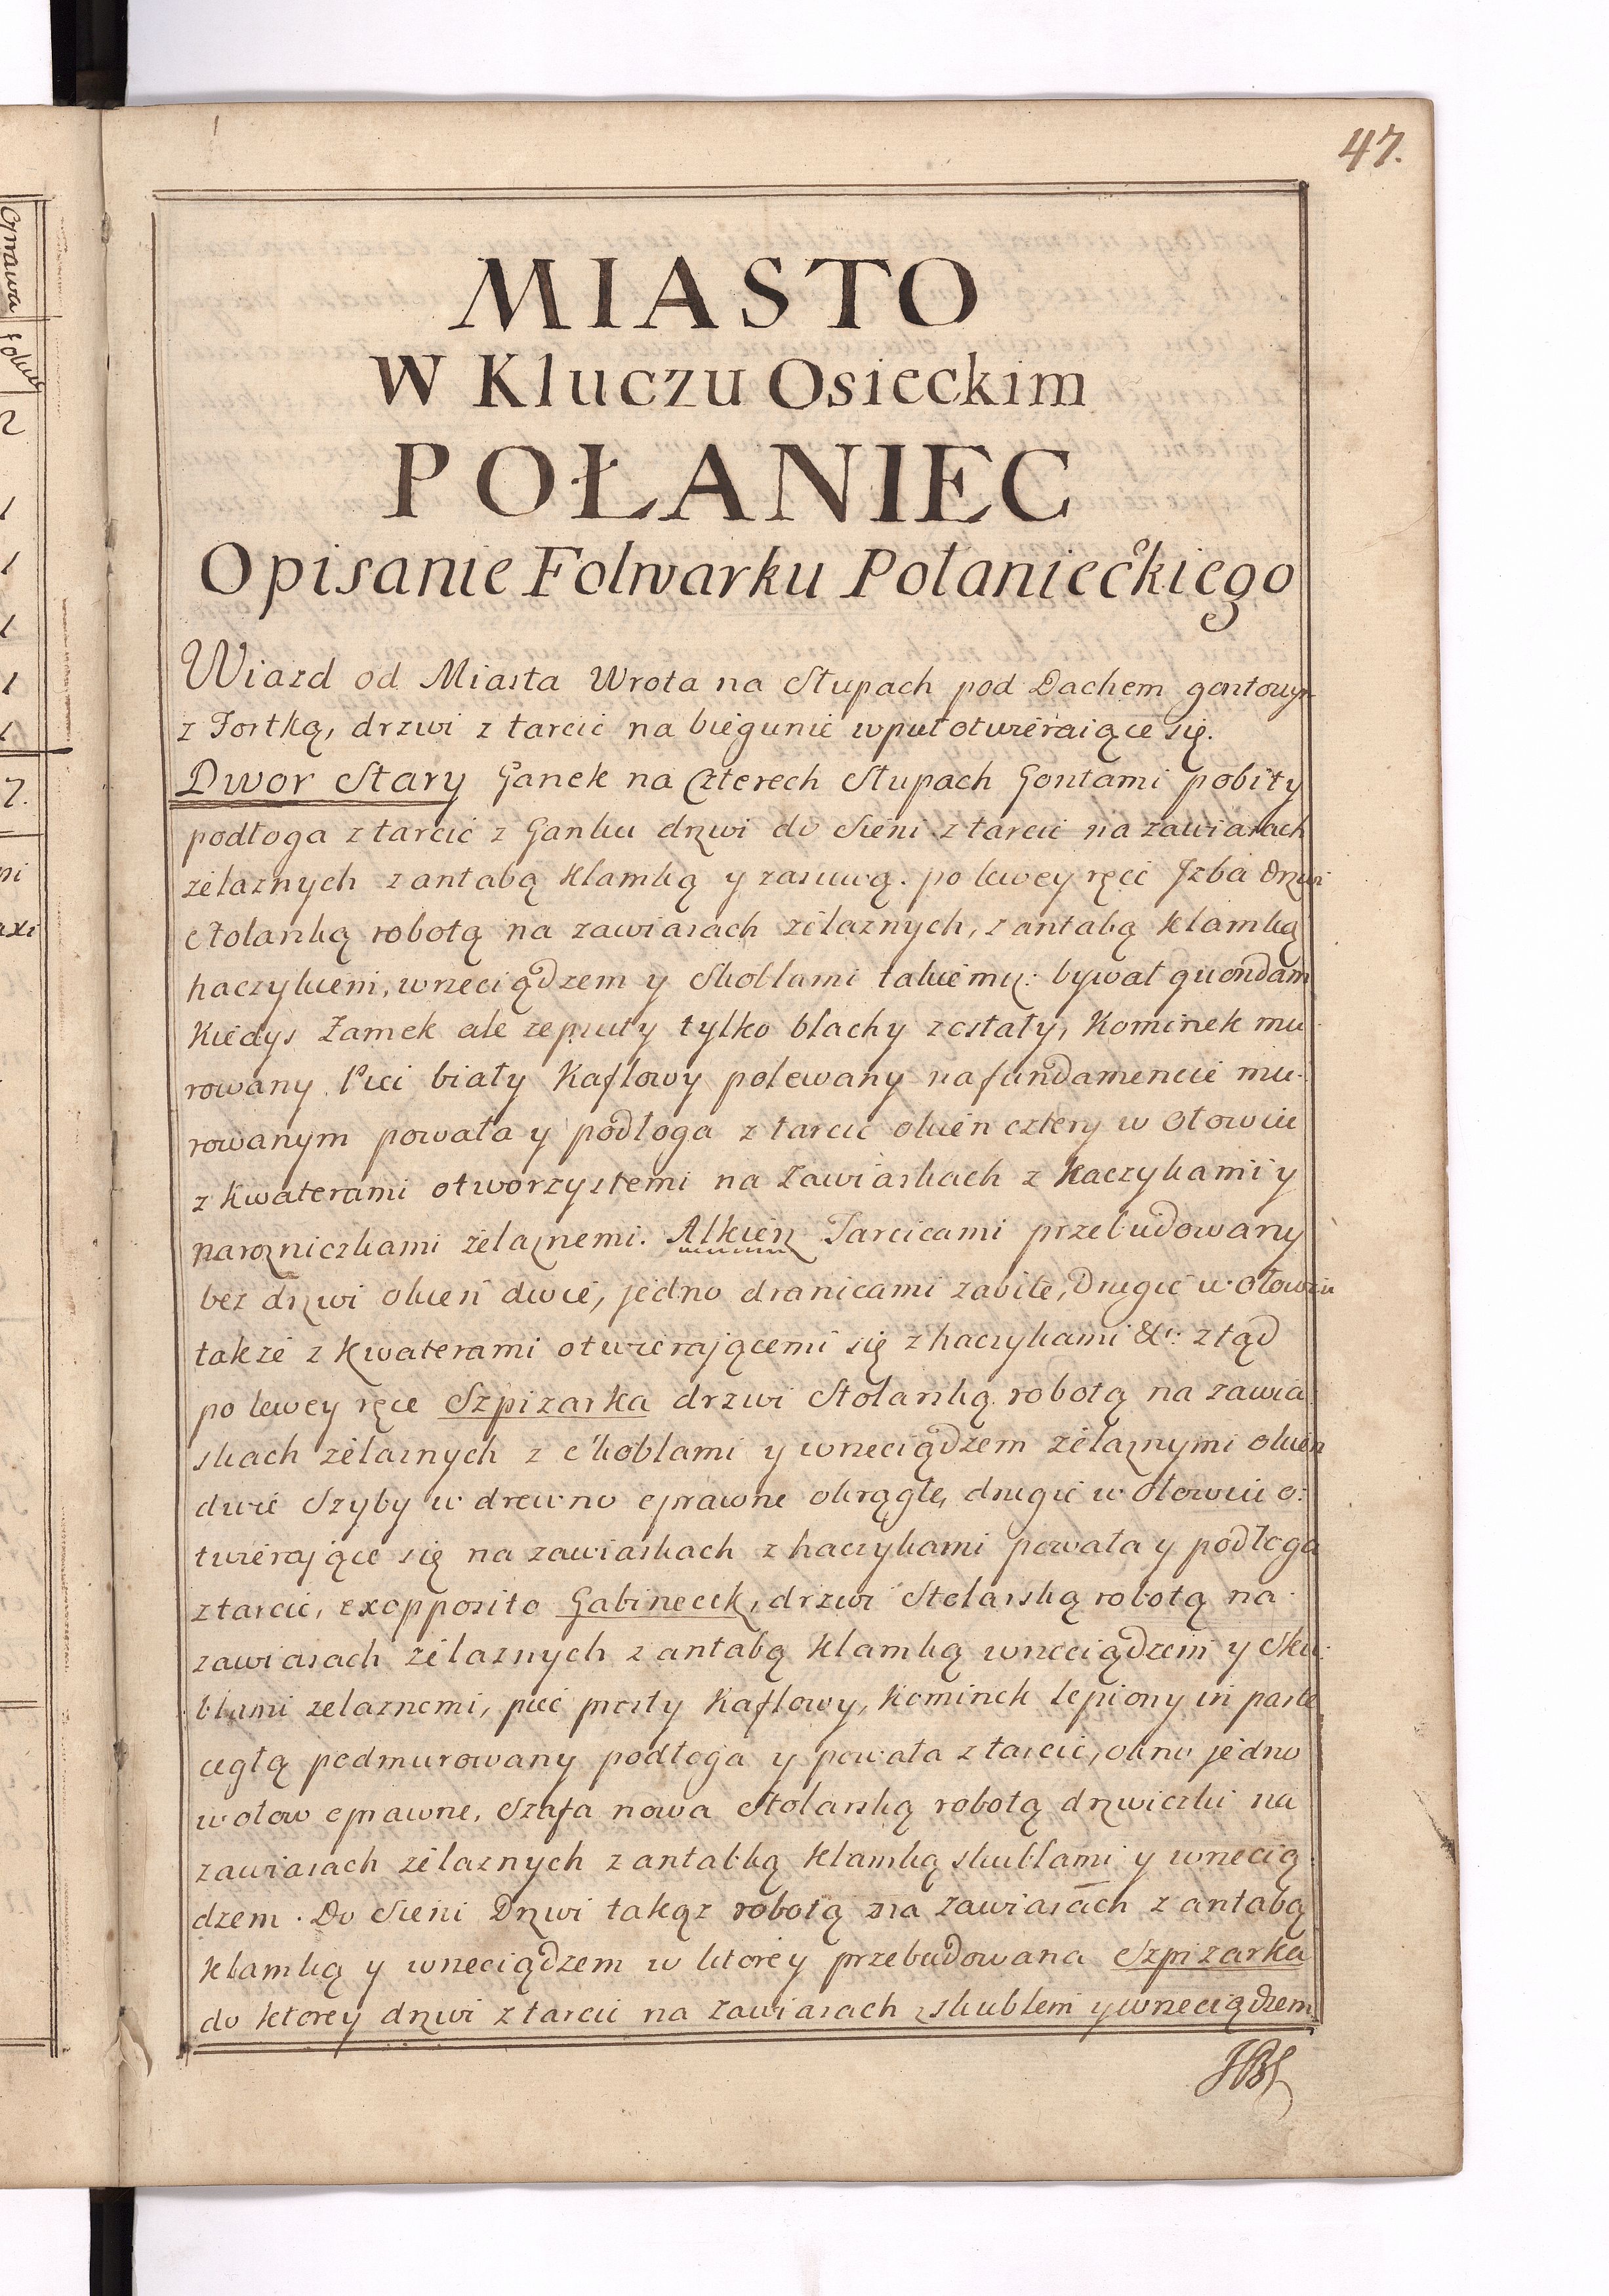 47.
MIASTO
W Kluczu Osieckim
POŁANIEC
Opisanie Folwarku Połanieckiego
Wiazd od Miasta Wrota na Słupach pod Dachem gontowym
z Fortką, drzwi z tarcic na biegunie wpułotwieraiące się.
Dwor Stary Ganek na Czterech Słupach Gontami pobity
podłoga z tarcic z Ganku drzwi do Sieni z tarcic na zawiasach
żelaznych z antabą klamką y zasuwą. po lewey ręce Jzba Drzwi
Stolarską robotą na zawiasach żelaznych, z antabą klamką
haczykiem, wrzeciądzem y Skoblami takiemiż: bywał quondam
Kiedys Zamek ale zepsuty tylko blachy zostały, Kominek mu-
rowany. Piec biały Kaflowy polewany na fundamencie mu-
rowanym powała y podłoga z tarcic okien cztery w Ołowiu
z Kwaterami otworzystemi na Zawiaskach z Haczykami y
narozniczkami żelaznemi. Alkierz Tarcicami przebudowany
bez drzwi okien dwie, jedno dranicami zabite, Drugie w Ołowiu
także z Kwaterami otwierającemi się z haczykami &c: ztąd
po lewey ręce Szpizarka drzwi Stolarską robotą na zawia
skach żelaznych z Skoblami y wrzeciądzem żelaznymi okien
dwie Szyby w drewno oprawne okrągłe, drugie w Ołowiu o:
twierające się na zawiaskach z haczykami powała y podłoga
z tarcic, exopposito Gabineczek, drzwi Stolarską robotą na
zawiasach żelaznych z antabą klamką wrzeciądzem y Sko:
blami zelaznemi, piec prosty Kaflowy, Kominek lepiony in parte
cegłą podmurowany podłoga y powała z tarcic, okno jedno
w ołow oprawne, Szafa nowa Stolarską robotą drzwiczki na
zawiasach żelaznych z antabką klamką skublami y wrzecią-
dzem. Do Sieni Drzwi takąż robotą na zawiasach z antabą
klamką y wrzeciądzem w ktorey przebudowana Szpizarka
do ktorey drzwi z tarcic na zawiasach z skublem y wrzeciądzem